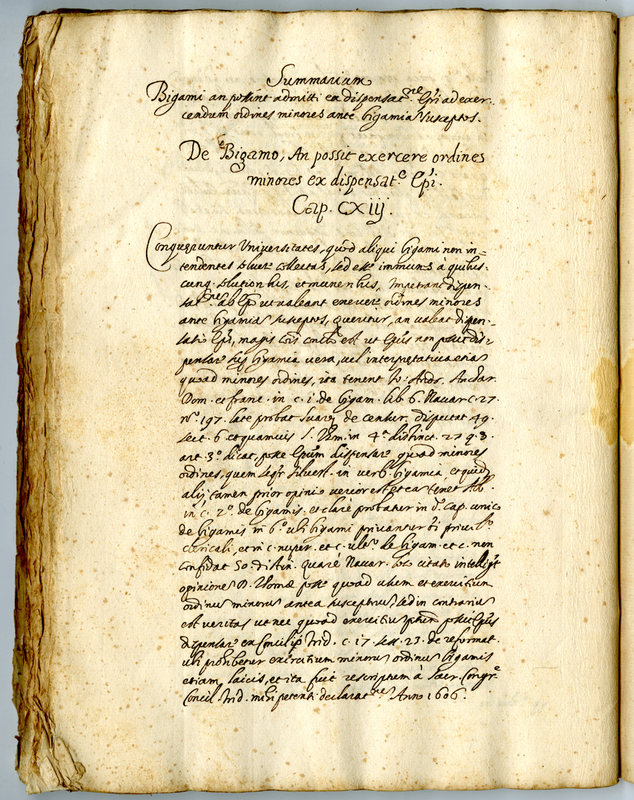 Summarium
Bigami an possint admitti ex dispensat.ne Epi ad exer-
cendum ordines minores ante bigamia susceptos.
De Bigamo, An possit exercere ordines
minores ex dispensat.e Epi.
Cap. CXiij.
Conqueruntur Universitates, quod aliqui bigami non in-
tendentes solvere collectas, sed esse immunes à quibus-
cunq. solutionibus, et muneribus, impetrant dispen-
sat.nes ab Epo ut valeant exercere ordines minores
ante bigamia susceptos, queritur, an valeat dispen-
satio Epi, magis cois est ut Epus non possit dis-
pensare bigamia vera, vel interpretativa etia
quoad minores ordines, ita tenent Io: Andr. Anchar.
Dom. et franc. in c. i. de bigam. lib. 6. Navar c. 27.
n.o 197. late probat Suarez de censur. disputat. 49.
sect. 6. et quamvis S. Thom. in 4.o distinct. 27. q. 3.
art. 3.o dicat, posse Epum dispensare quoad minores
ordines, quem seqr Silvest. in verb. bigamia, et quidā
alij, tamen prior opinio verior est, et ea tenet Ab.
in c. 2.o de bigamis. et clarè probatur in d. cap. unico
de bigamis in 6.o ubi bigami privantur oi privil.o
clericali, et in c. nuper. et c. ult.o de bigam. et c. non
confidat 50 distin. quarè Navar. loc. citato intelligit
opinione D. Thomæ posse quoad usum et exercitium
ordinis minoris antea susceptis, sed in contrariū
est veritas ut nec quoad exercitiū possit Epus
dispensare ex Concilio Trid. c. 17. sess. 23. de reformat.
ubi prohibetur exercitium minoris ordinis bigamis
etiam laicis, et ita fuit rescriptum à Sacr. Congr.e
Concil. Trid. mihi petenti declarat.nes Anno 1606.